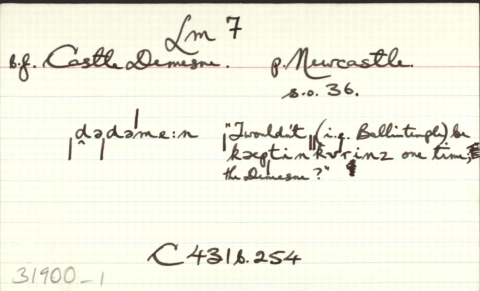 Lm 7
b.f. Castle Demesne. p. Newcastle.
s.o. 36.
ˌd̪əˌdəˈme:n "ˌTwouldn't (i.e. Ballintemple) be
kæptin kʏrinz one time,
the Demesne?"
C 431 b. 254
31900-1